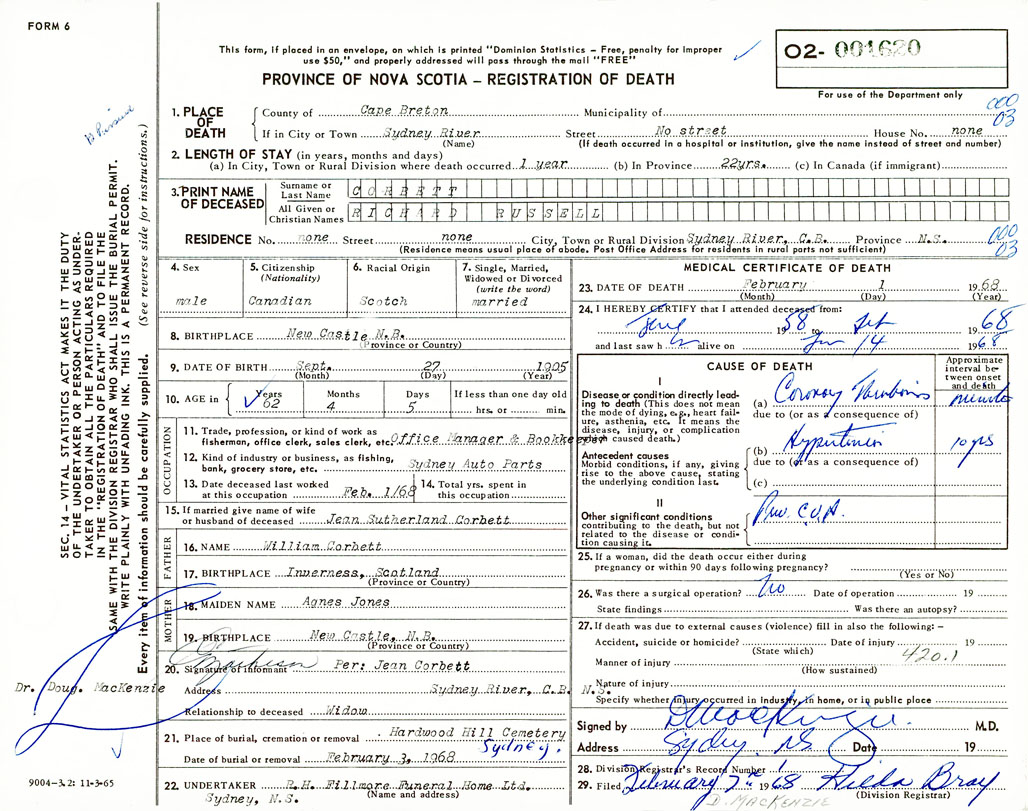 FORM 6
This form, if placed in an envelope, on which is printed "Dominion Statistics – Free, penalty for improper
use $50," and properly addressed will pass through the mail "FREE"
PROVINCE OF NOVA SCOTIA – REGISTRATION OF DEATH
O2- 001620
For use of the Department only
000
03
SEC. 14 – VITAL STATISTICS ACT MAKES IT THE DUTY
OF THE UNDERTAKER OR PERSON ACTING AS UNDER-
TAKER TO OBTAIN ALL THE PARTICULARS REQUIRED
IN THE "REGISTRATION OF DEATH" AND TO FILE THE
SAME WITH THE DIVISION REGISTRAR WHO SHALL ISSUE THE BURIAL PERMIT.
WRITE PLAINLY WITH UNFADING INK. THIS IS A PERMANENT RECORD.
Every item of information should be carefully supplied. (See reverse side for instructions.)
1. PLACE OF DEATH
County of Cape Breton Municipality of
If in City or Town Sydney River Street No street House No. none
(Name) (If death occurred in a hospital or institution, give the name instead of street and number)
2. LENGTH OF STAY (in years, months and days)
(a) In City, Town or Rural Division where death occurred 1 year (b) In Province 22yrs. (c) In Canada (if immigrant)
3. PRINT NAME OF DECEASED
Surname or Last Name CORBETT
All Given or Christian Names RICHARD RUSSELL
RESIDENCE No. none Street none City, Town or Rural Division Sydney River, C.B. Province N.S.
(Residence means usual place of abode. Post Office Address for residents in rural parts not sufficient)
000
03
4. Sex male
5. Citizenship (Nationality) Canadian
6. Racial Origin Scotch
7. Single, Married, Widowed or Divorced (write the word) married
8. BIRTHPLACE New Castle N.B.
(Province or Country)
9. DATE OF BIRTH Sept. 27 1905
(Month) (Day) (Year)
10. AGE in Years 62 Months 4 Days 5 If less than one day old
hrs. or min.
OCCUPATION
11. Trade, profession, or kind of work as
fisherman, office clerk, sales clerk, etc. Office Manager & Bookkeeper
12. Kind of industry or business, as fishing,
bank, grocery store, etc. Sydney Auto Parts
13. Date deceased last worked
at this occupation Feb. 1/68
14. Total yrs. spent in
this occupation
15. If married give name of wife
or husband of deceased Jean Sutherland Corbett
FATHER
16. NAME William Corbett
17. BIRTHPLACE Inverness, Scotland
(Province or Country)
MOTHER
18. MAIDEN NAME Agnes Jones
19. BIRTHPLACE New Castle, N.B.
(Province or Country)
20. Signature of informant Per: Jean Corbett
Address Sydney River, C.B. N.S.
Relationship to deceased Widow
Dr. Doug. MacKenzie
21. Place of burial, cremation or removal Hardwood Hill Cemetery
Sydney.
Date of burial or removal February 3, 1968
22. UNDERTAKER R.H. Fillmore Funeral Home Ltd.
(Name and address)
Sydney, N.S.
9004-3.2: 11-3-65
MEDICAL CERTIFICATE OF DEATH
23. DATE OF DEATH February 1 1968
(Month) (Day) (Year)
24. I HEREBY CERTIFY that I attended deceased from:
1958 to Feb 1968
and last saw h m alive on Jan 14 1968
CAUSE OF DEATH
Approximate interval between onset and death
I
Disease or condition directly lead-
ing to death (This does not mean
the mode of dying, e.g., heart fail-
ure, asthenia, etc. It means the
disease, injury, or complication
which caused death.)
(a) Coronary Thrombosis minutes
due to (or as a consequence of)
Antecedent causes
Morbid conditions, if any, giving
rise to the above cause, stating
the underlying condition last.
(b) Hypertension 10 yrs
due to (or as a consequence of)
(c)
II
Other significant conditions
contributing to the death, but not
related to the disease or condi-
tion causing it.
Prev. C.V.A.
25. If a woman, did the death occur either during
pregnancy or within 90 days following pregnancy?
(Yes or No)
26. Was there a surgical operation? No Date of operation 19
State findings Was there an autopsy?
27. If death was due to external causes (violence) fill in also the following: –
Accident, suicide or homicide? Date of injury 19
(State which)
420.1
Manner of injury
(How sustained)
Nature of injury
Specify whether injury occurred in industry, in home, or in public place
Signed by D MacKenzie M.D.
Address Sydney, NS Date 19
28. Division Registrar's Record Number
29. Filed February 7th 1968 Hilda Bray
(Division Registrar)
D. MACKENZIE